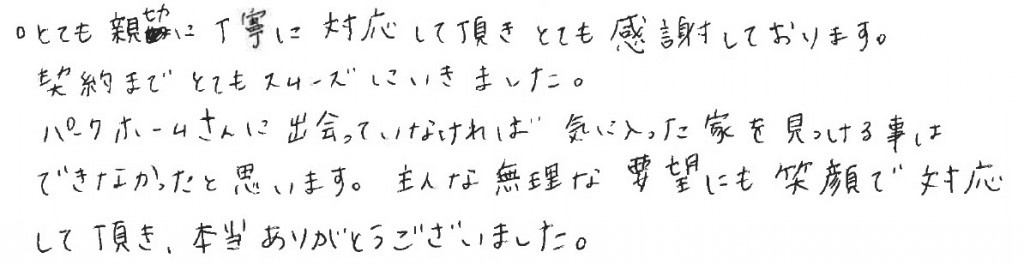 ○とても親切に丁寧に対応して頂きとても感謝しております。
契約までとてもスムーズにいきました。
パークホームさんに出会っていなければ気に入った家を見つける事は
できなかったと思います。主人な無理な要望にも笑顔で対応
して頂き、本当ありがとうございました。